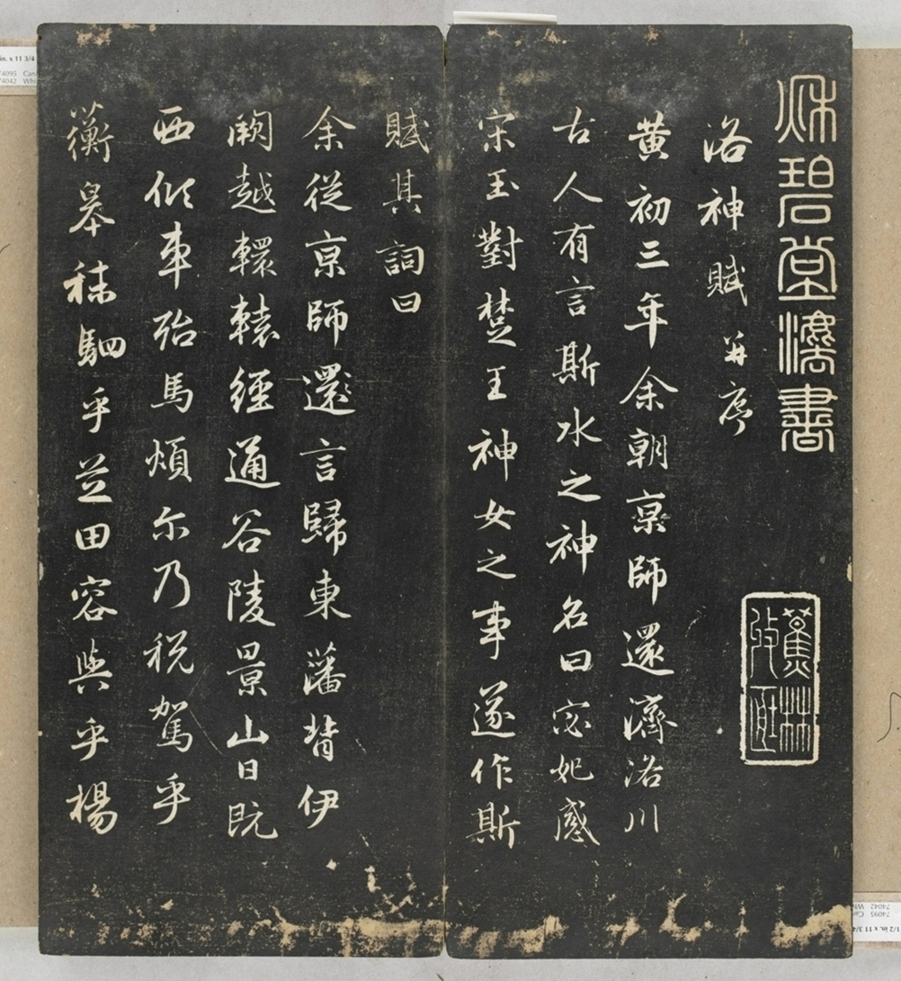 秌碧堂法書
洛神賦并序
黄初三年余朝京師還濟洛川
古人有言斯水之神名曰宓妃感
宋玉對楚王神女之事遂作斯
賦其詞曰
余從京師還言歸東藩背伊
闕越轘轅經通谷陵景山日既
西傾車殆馬煩尔乃税駕乎
蘅皋秣駟乎芝田容與乎楊
蕉林